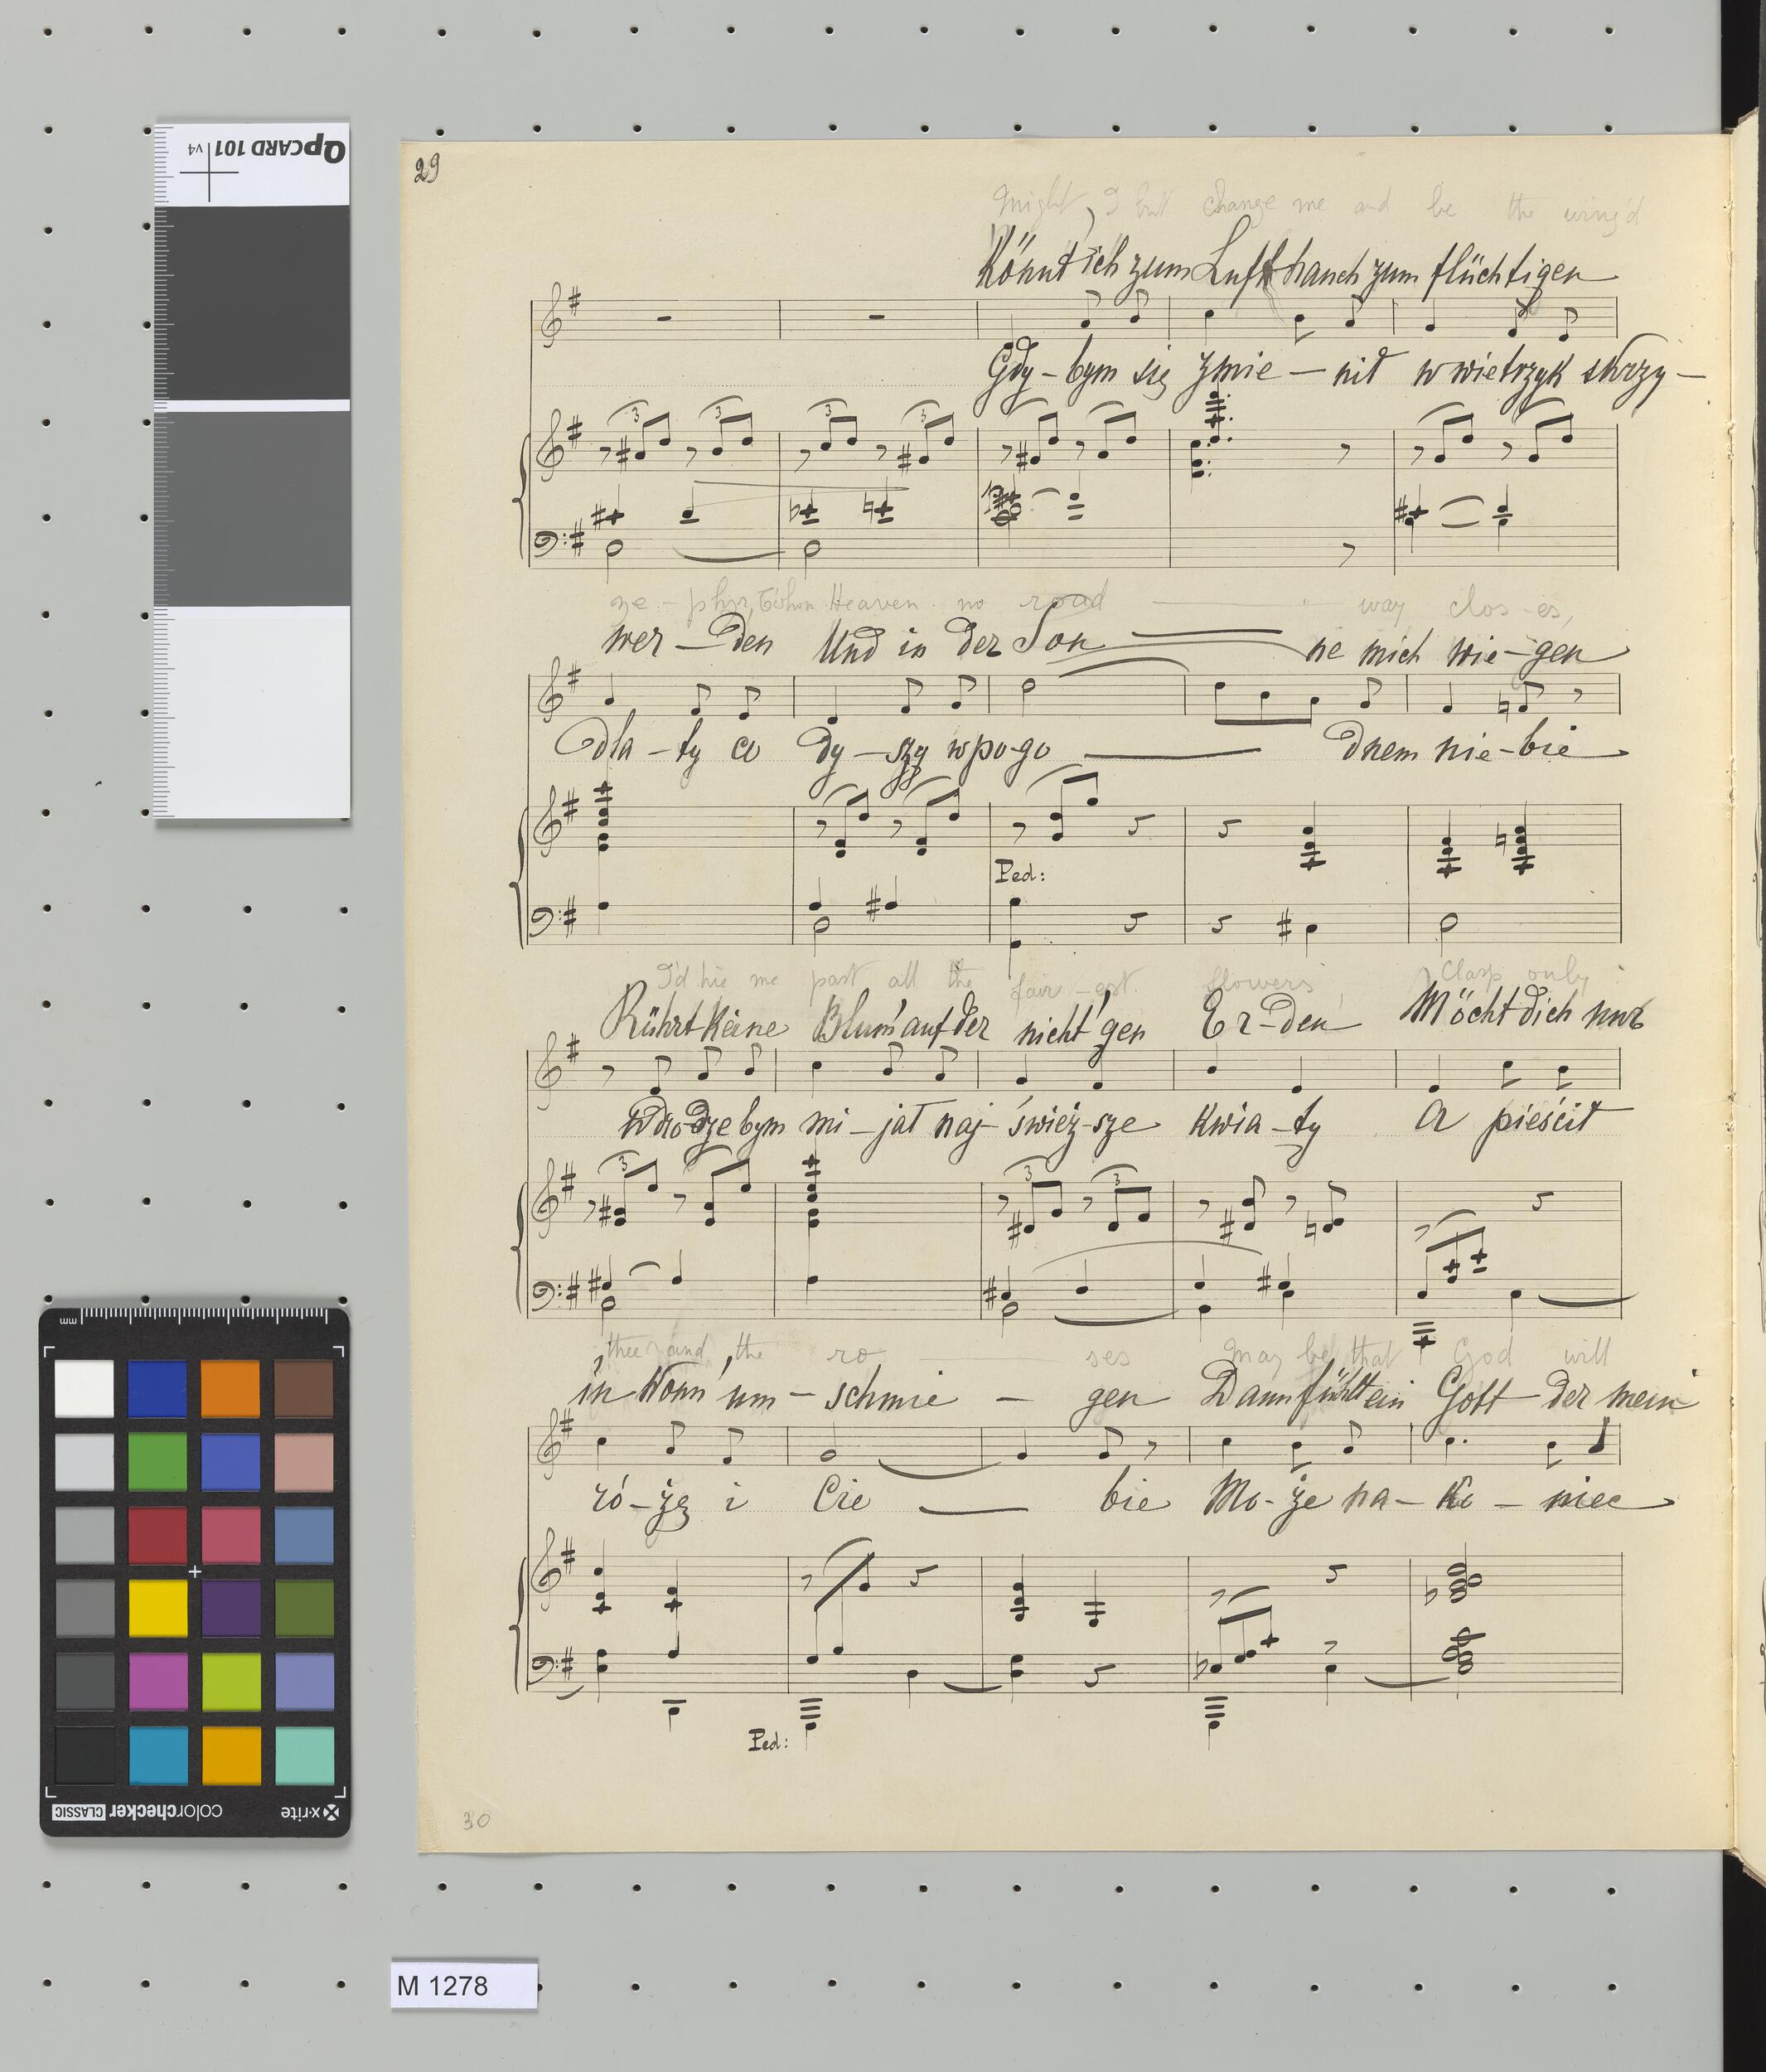 QPCARD 101 v4
29
Might I but change me and be the wing'd
Könnt' ich zum Lufthauch zum flüchtigen
Gdy - bym się zmie - nił w wietrzyk skrzy -
3 3 3 3
ze - phyr, when Heaven no road way clos - es,
wer - den Und in der Son ne mich wie - gen
dla - ty co dy - szy w po - go dnem nie - bie
Ped:
I'd hie me past all the fair - est flowers Clasp only
Rührt keine Blum' auf der nicht'gen Er - den Möcht dich nur
W dro - dze bym mi - jał naj - śwież - sze kwia - ty A pieścił
3 3 3
thee and the ro ses May be that God will
in Wonn' um - schmie - gen Dann fühlt ein Gott der mein
ró - żę i Cie bie Mo - że na - ko - niec
Ped:
30
mm
x-rite colorchecker CLASSIC
M 1278